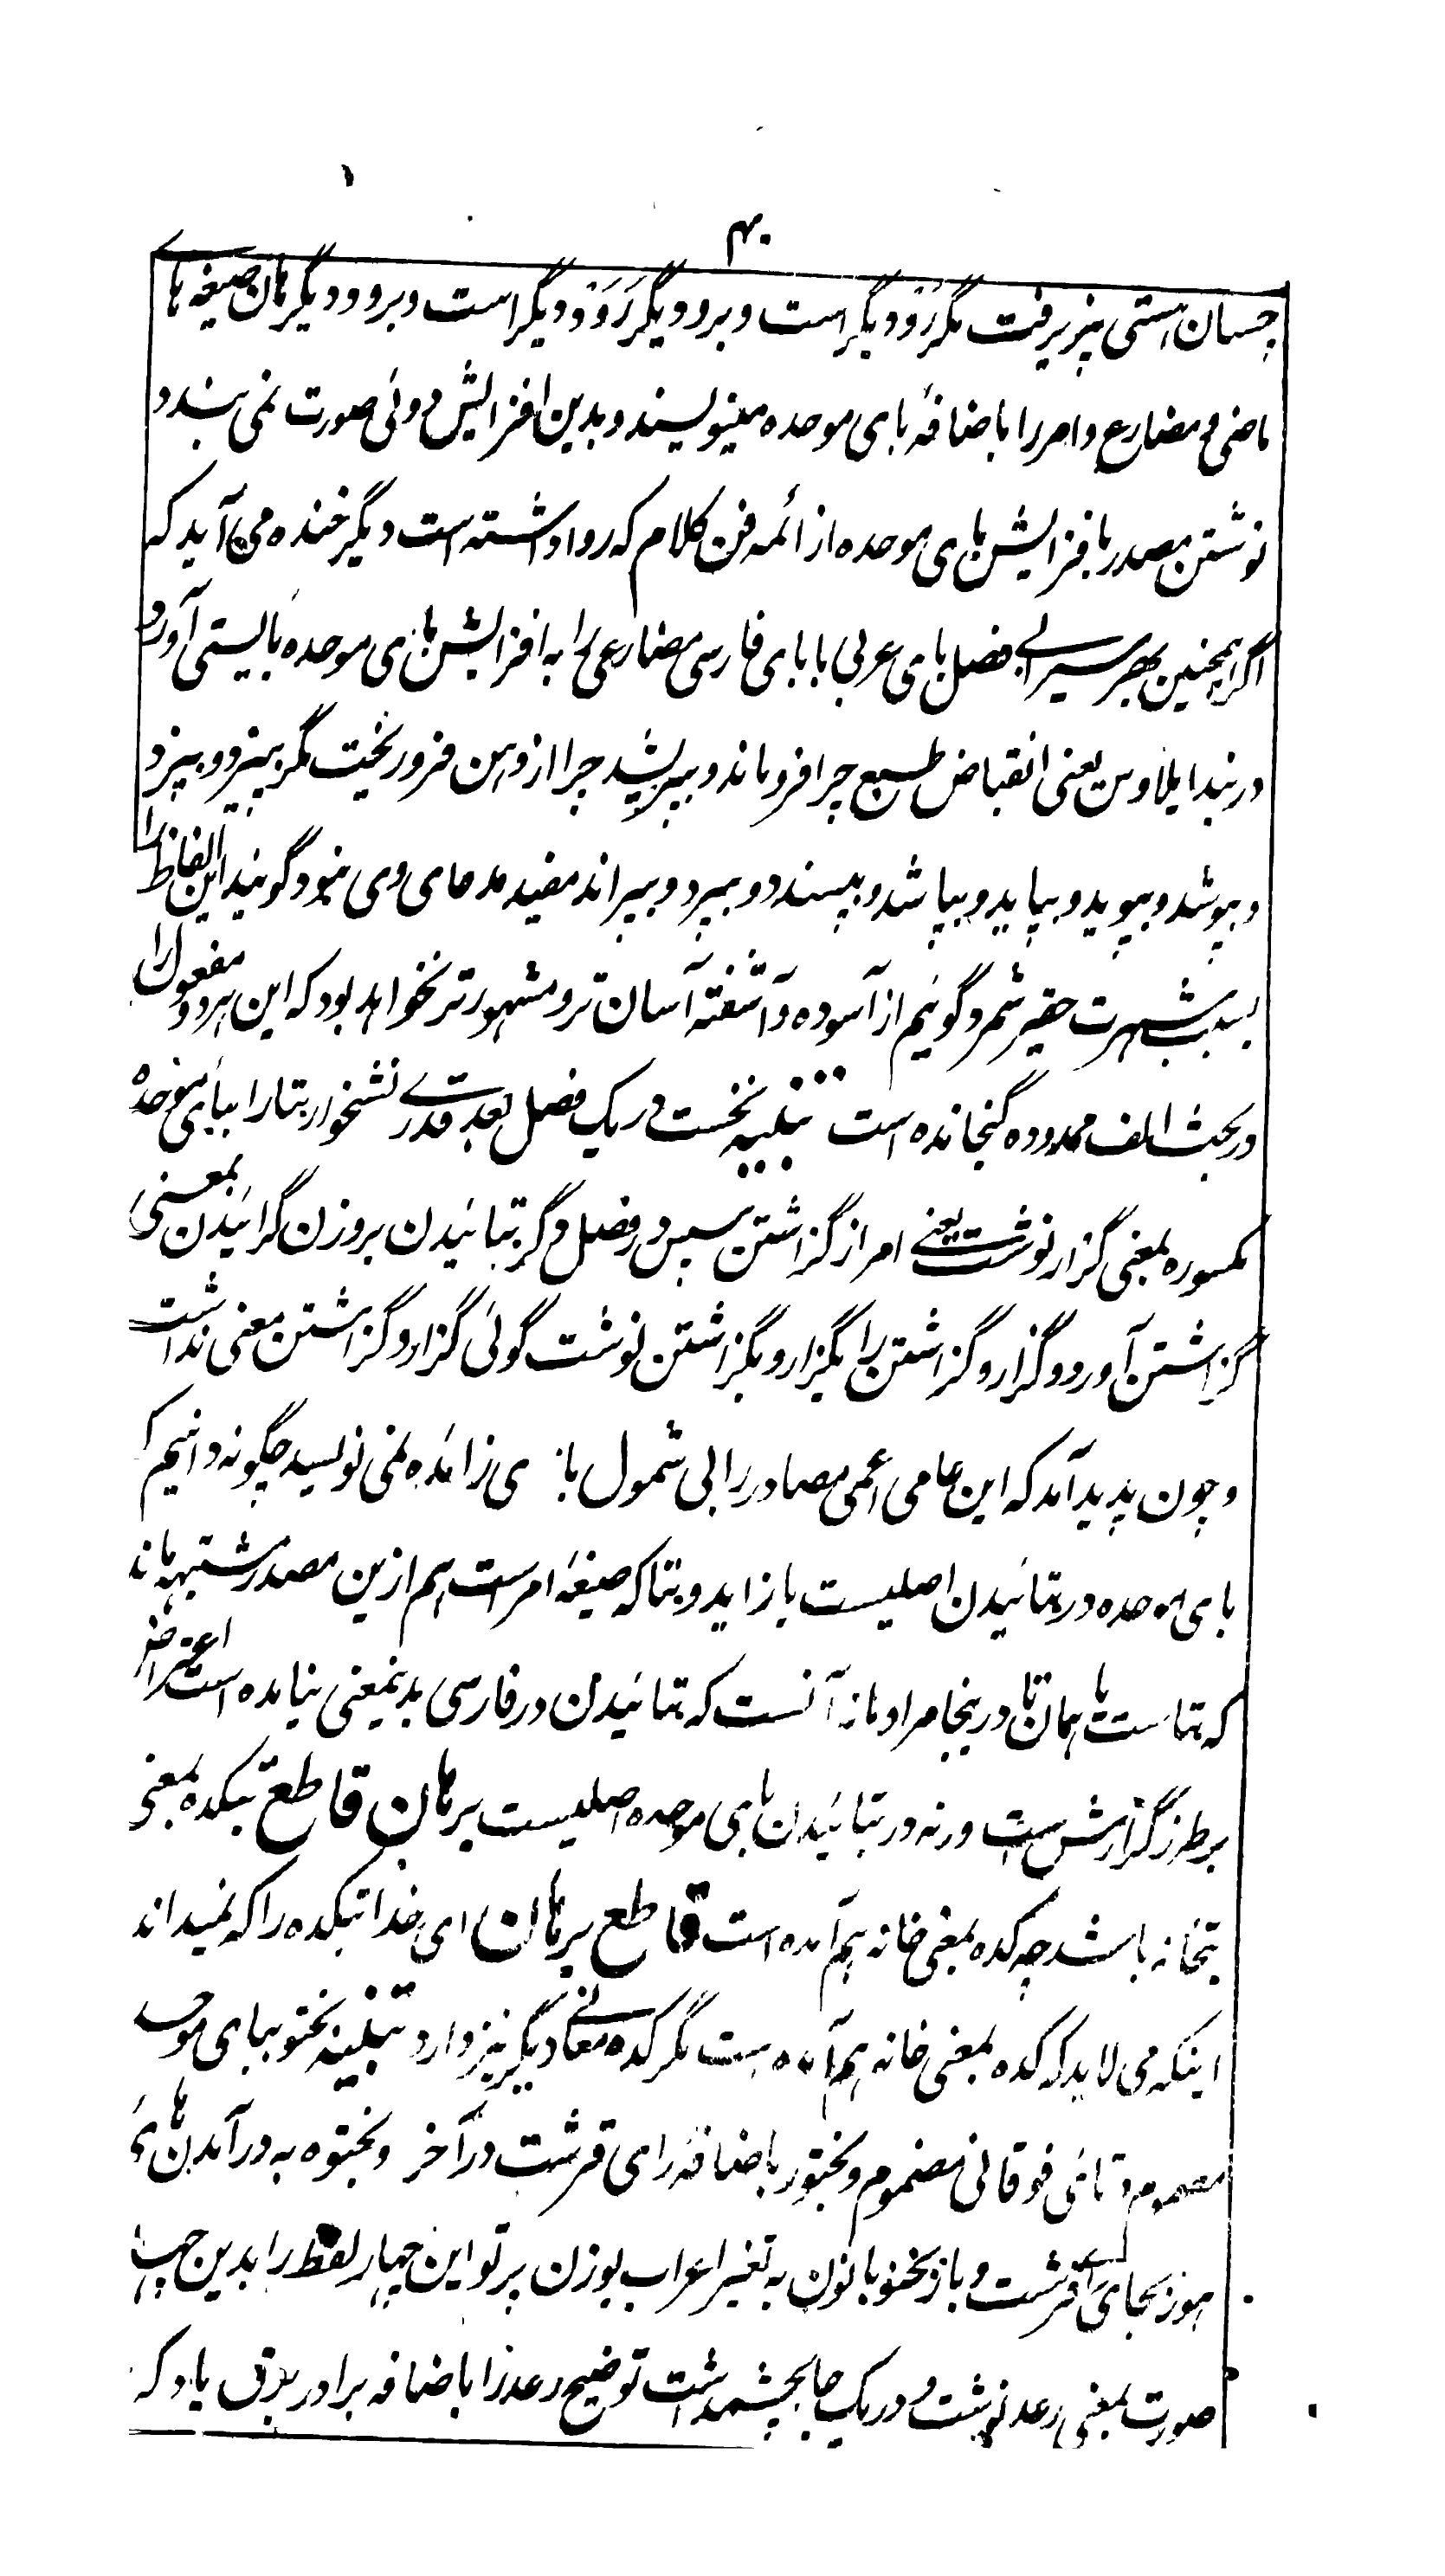 ۴۰
چسان هستی پذیرفت مگر رَوَد دیگر است و برود دیگر رَوَد دیگر است و برود دیگر همان صیغه ها
ماضی و مضارع و امر را باضافهٔ بای موحده مینویسند و بدین افزایش دوئی صورت نمی بندد
نوشتن مصدر بافزایش بای موحده از ائمه فن کلام که روا داشته است دیگر خنده می آید که
اگر همچنین بهر سیرابی فصل بای عربی با بای فارسی مضارعی را به افزایش بای موحده بایستی آورد
در بند ایلاوس یعنی انقباض طبع چرا فرو ماند و بپریشد چرا از دهن فرو ریخت مگر بپیزد و بپزد
و بپوشد و بپوید و بپاید و بپاشد و بپسندد و بپرد و بپراند مفید مدعای وی نبود گویند این الفاظ را
بسبب شهرت حقیر شمرد گوئیم از آسوده و آشفته آسان تر و مشهورتر نخواهد بود که این هر دو مفعول را
در بحث الف ممدوده گنجانده است تنبیه نخست در یک فصل بعد قدری نشخوار بتا را ببای موحده
مکسوره بمعنی گزار نوشت یعنی امر از گزاشتن سپس در فصل دگر بتائیدن بروزن گرائیدن بمعنی
گزاشتن آورد و گزار و گزاشتن را بگزار و بگزاشتن نوشت گوئی گزار و گزاشتن معنی نداشت
و چون پدید آمد که این عامی اعمی مصادر را بی شمول بای زائده نمی نویسد چگونه دانیم که
بای موحده در بتائیدن اصلیست یا زاید و بتا که صیغهٔ امر است هم ازین مصدر مشتبه ماند
که بتاست یا همان تا درینجا مراد ما نه آنست که تائیدن در فارسی بدینمعنی نیامده است اعتراض
بر طرز گزارش ست ورنه در بتائیدن بای موحده اصلیست برهان قاطع بتکده بمعنی
بتخانه باشد چه کده بمعنی خانه هم آمده است قاطع برهان ای خدا بتکده را که نمیداند
اینکه می لاید که کده بمعنی خانه هم آمده است مگر کده معانی دیگر نیز دارد تنبیه بختو ببای موحده
مضموم و تائی فوقانی مضموم و بختور باضافهٔ رای قرشت در آخر و بختوه به در آمدن های
هوز بجای رای قرشت و باز بخنو بانون به تغییر اعراب بوزن پرتو این چهار لفظ را بدین چهار
صورت بمعنی رعد نوشت و در یک جا بچشمداشت توضیح رعد را باضافه برادر برق یاد کرد